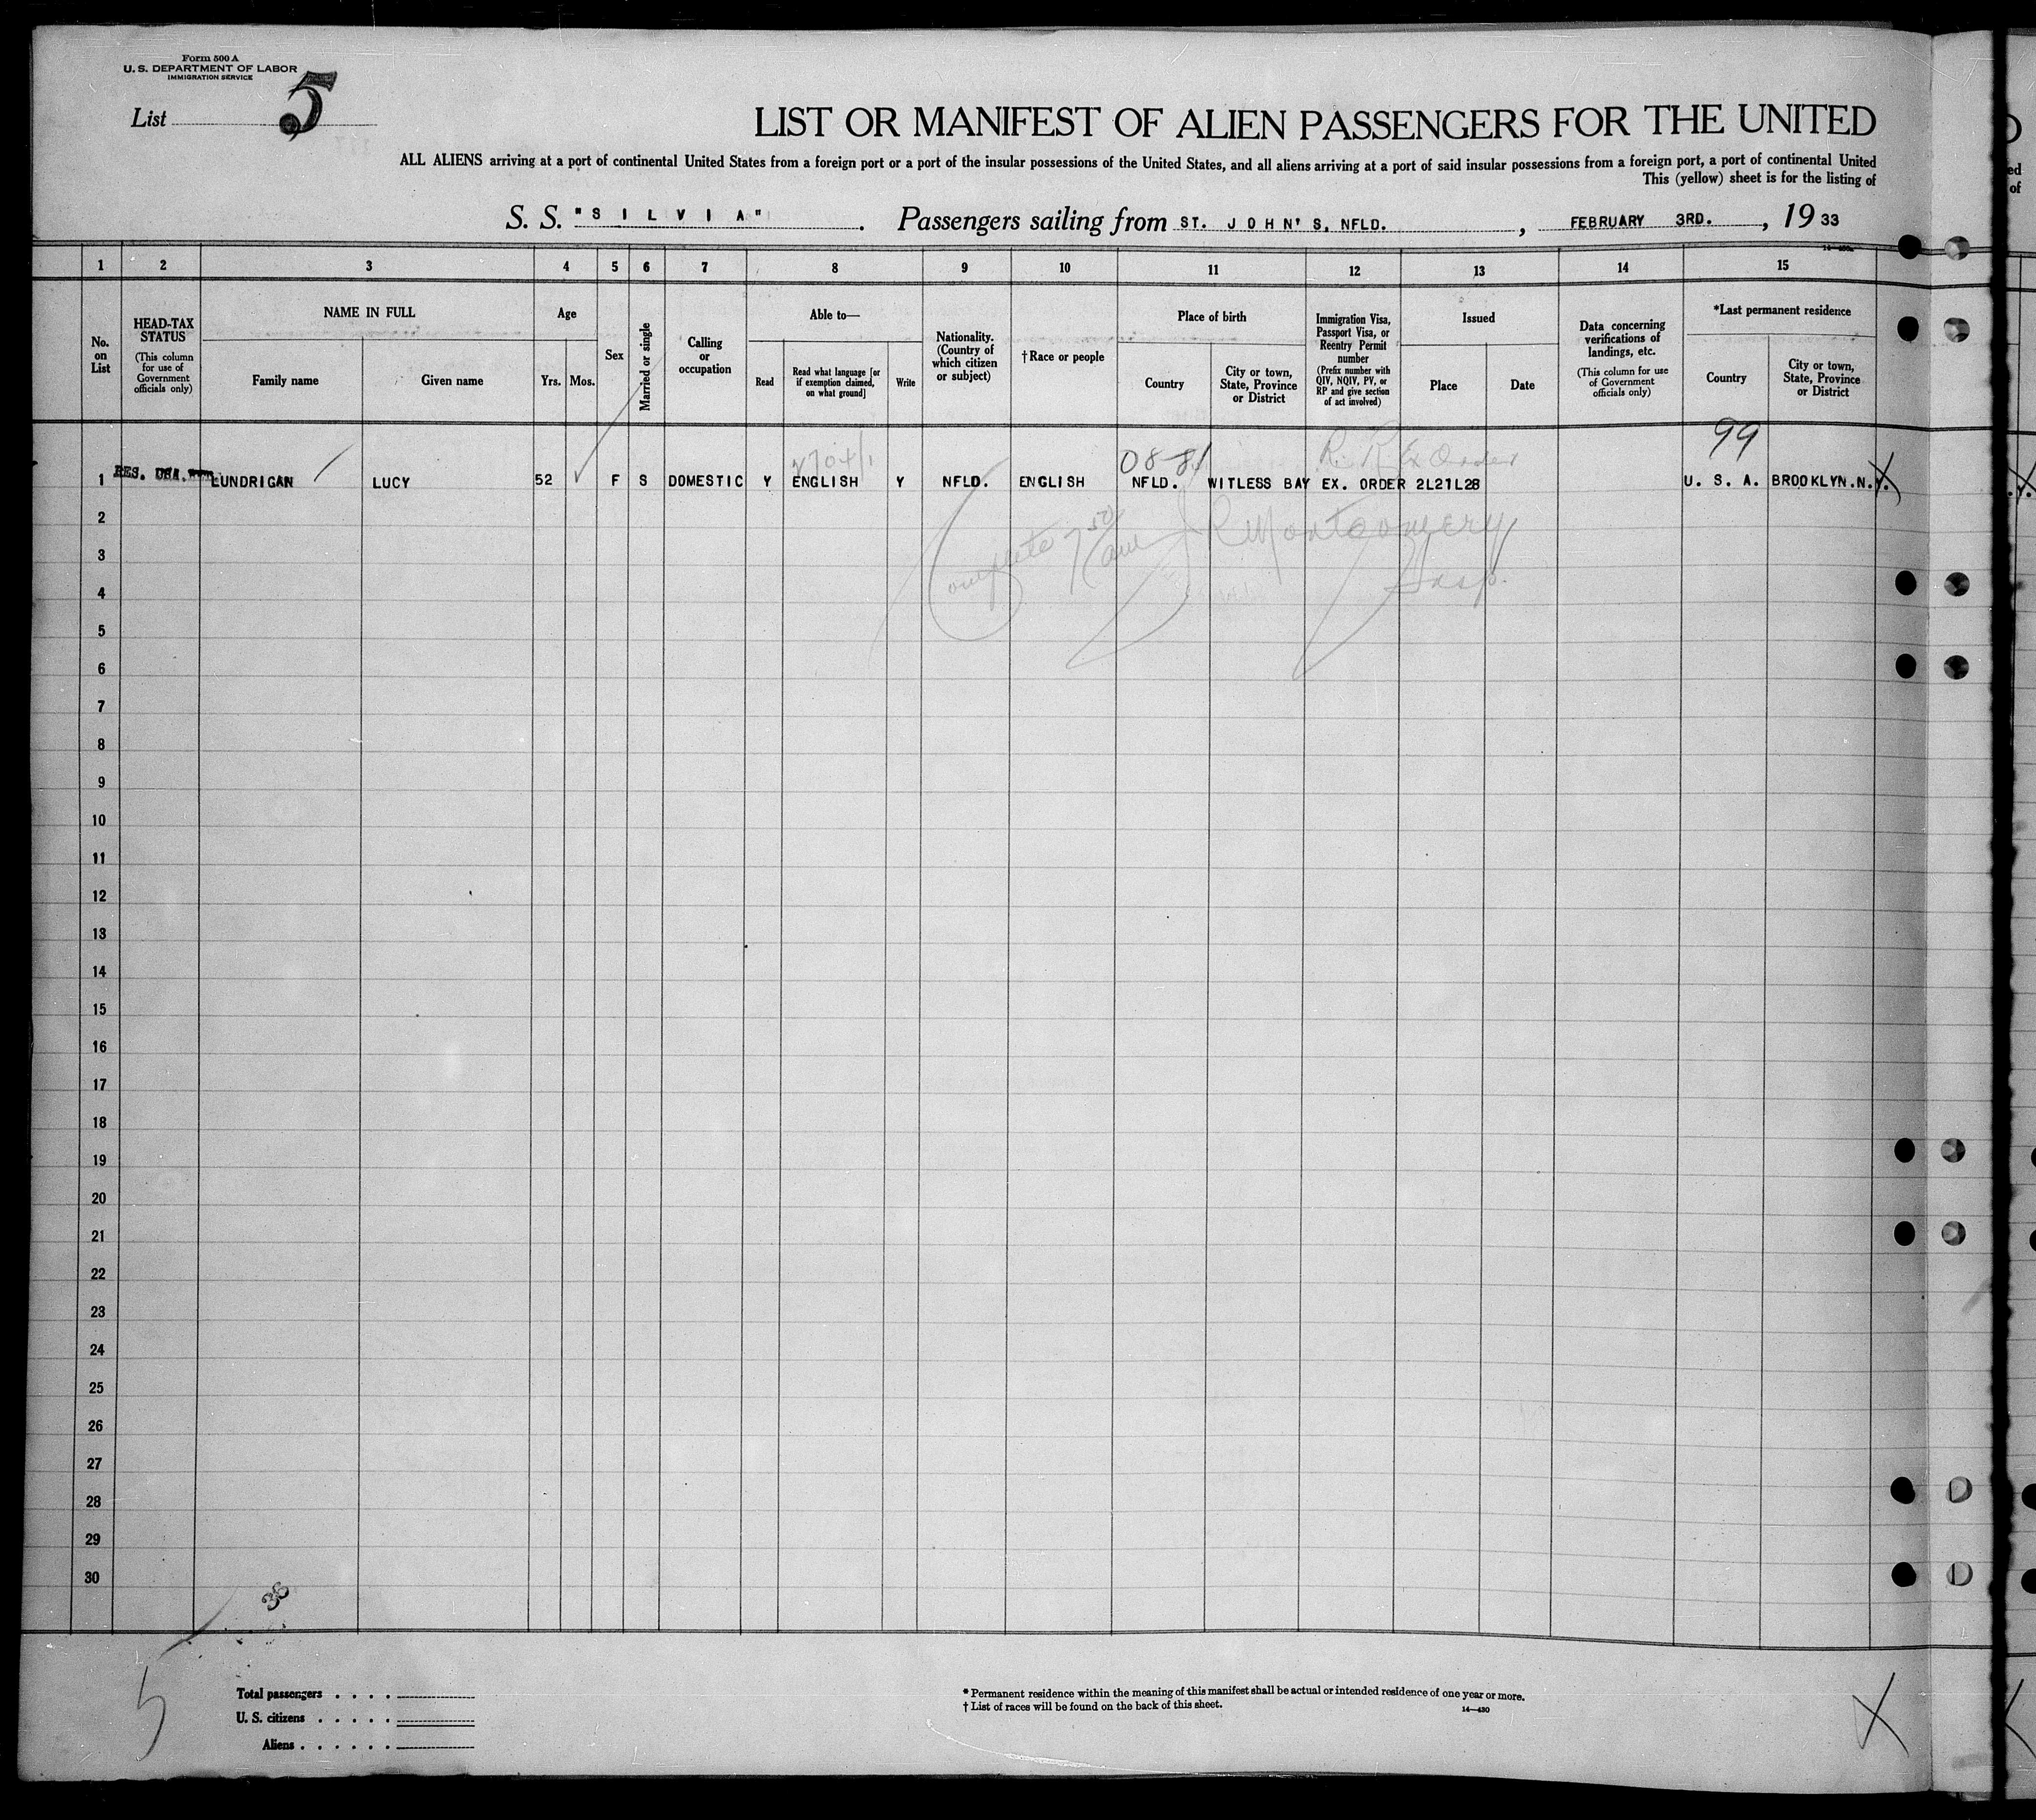 Form 500 A
U. S. DEPARTMENT OF LABOR
IMMIGRATION SERVICE
List 5
LIST OR MANIFEST OF ALIEN PASSENGERS FOR THE UNITED
ALL ALIENS arriving at a port of continental United States from a foreign port or a port of the insular possessions of the United States, and all aliens arriving at a port of said insular possessions from a foreign port, a port of continental United
This (yellow) sheet is for the listing of
S. S. "SILVIA". Passengers sailing from ST. JOHN'S, NFLD., FEBRUARY 3RD., 1933
1 2 3 4 5 6 7 8 9 10 11 12 13 14 15
No. on List
HEAD-TAX STATUS
(This column for use of Government officials only)
NAME IN FULL
Family name
Given name
Age
Yrs. Mos.
Sex
Married or single
Calling or occupation
Able to—
Read
Read what language [or if exemption claimed, on what ground]
Write
Nationality. (Country of which citizen or subject)
†Race or people
Place of birth
Country
City or town, State, Province or District
Immigration Visa, Passport Visa, or Reentry Permit number
(Prefix number with QIV, NQIV, PV, or RP and give section of act involved)
Issued
Place
Date
Data concerning verifications of landings, etc.
(This column for use of Government officials only)
*Last permanent residence
Country
City or town, State, Province or District
08-81 R. R Ex Order 99
1 RES. USA. LUNDRIGAN LUCY 52 F S DOMESTIC Y ENGLISH Y NFLD. ENGLISH NFLD. WITLESS BAY EX. ORDER 2L21L28 U. S. A. BROOKLYN.N.Y.
Complete 7 50 am J R Montgomery
Insp.
2
3
4
5
6
7
8
9
10
11
12
13
14
15
16
17
18
19
20
21
22
23
24
25
26
27
28
29
30
38
5
Total passengers
U. S. citizens
Aliens
* Permanent residence within the meaning of this manifest shall be actual or intended residence of one year or more.
† List of races will be found on the back of this sheet.
14—430
X